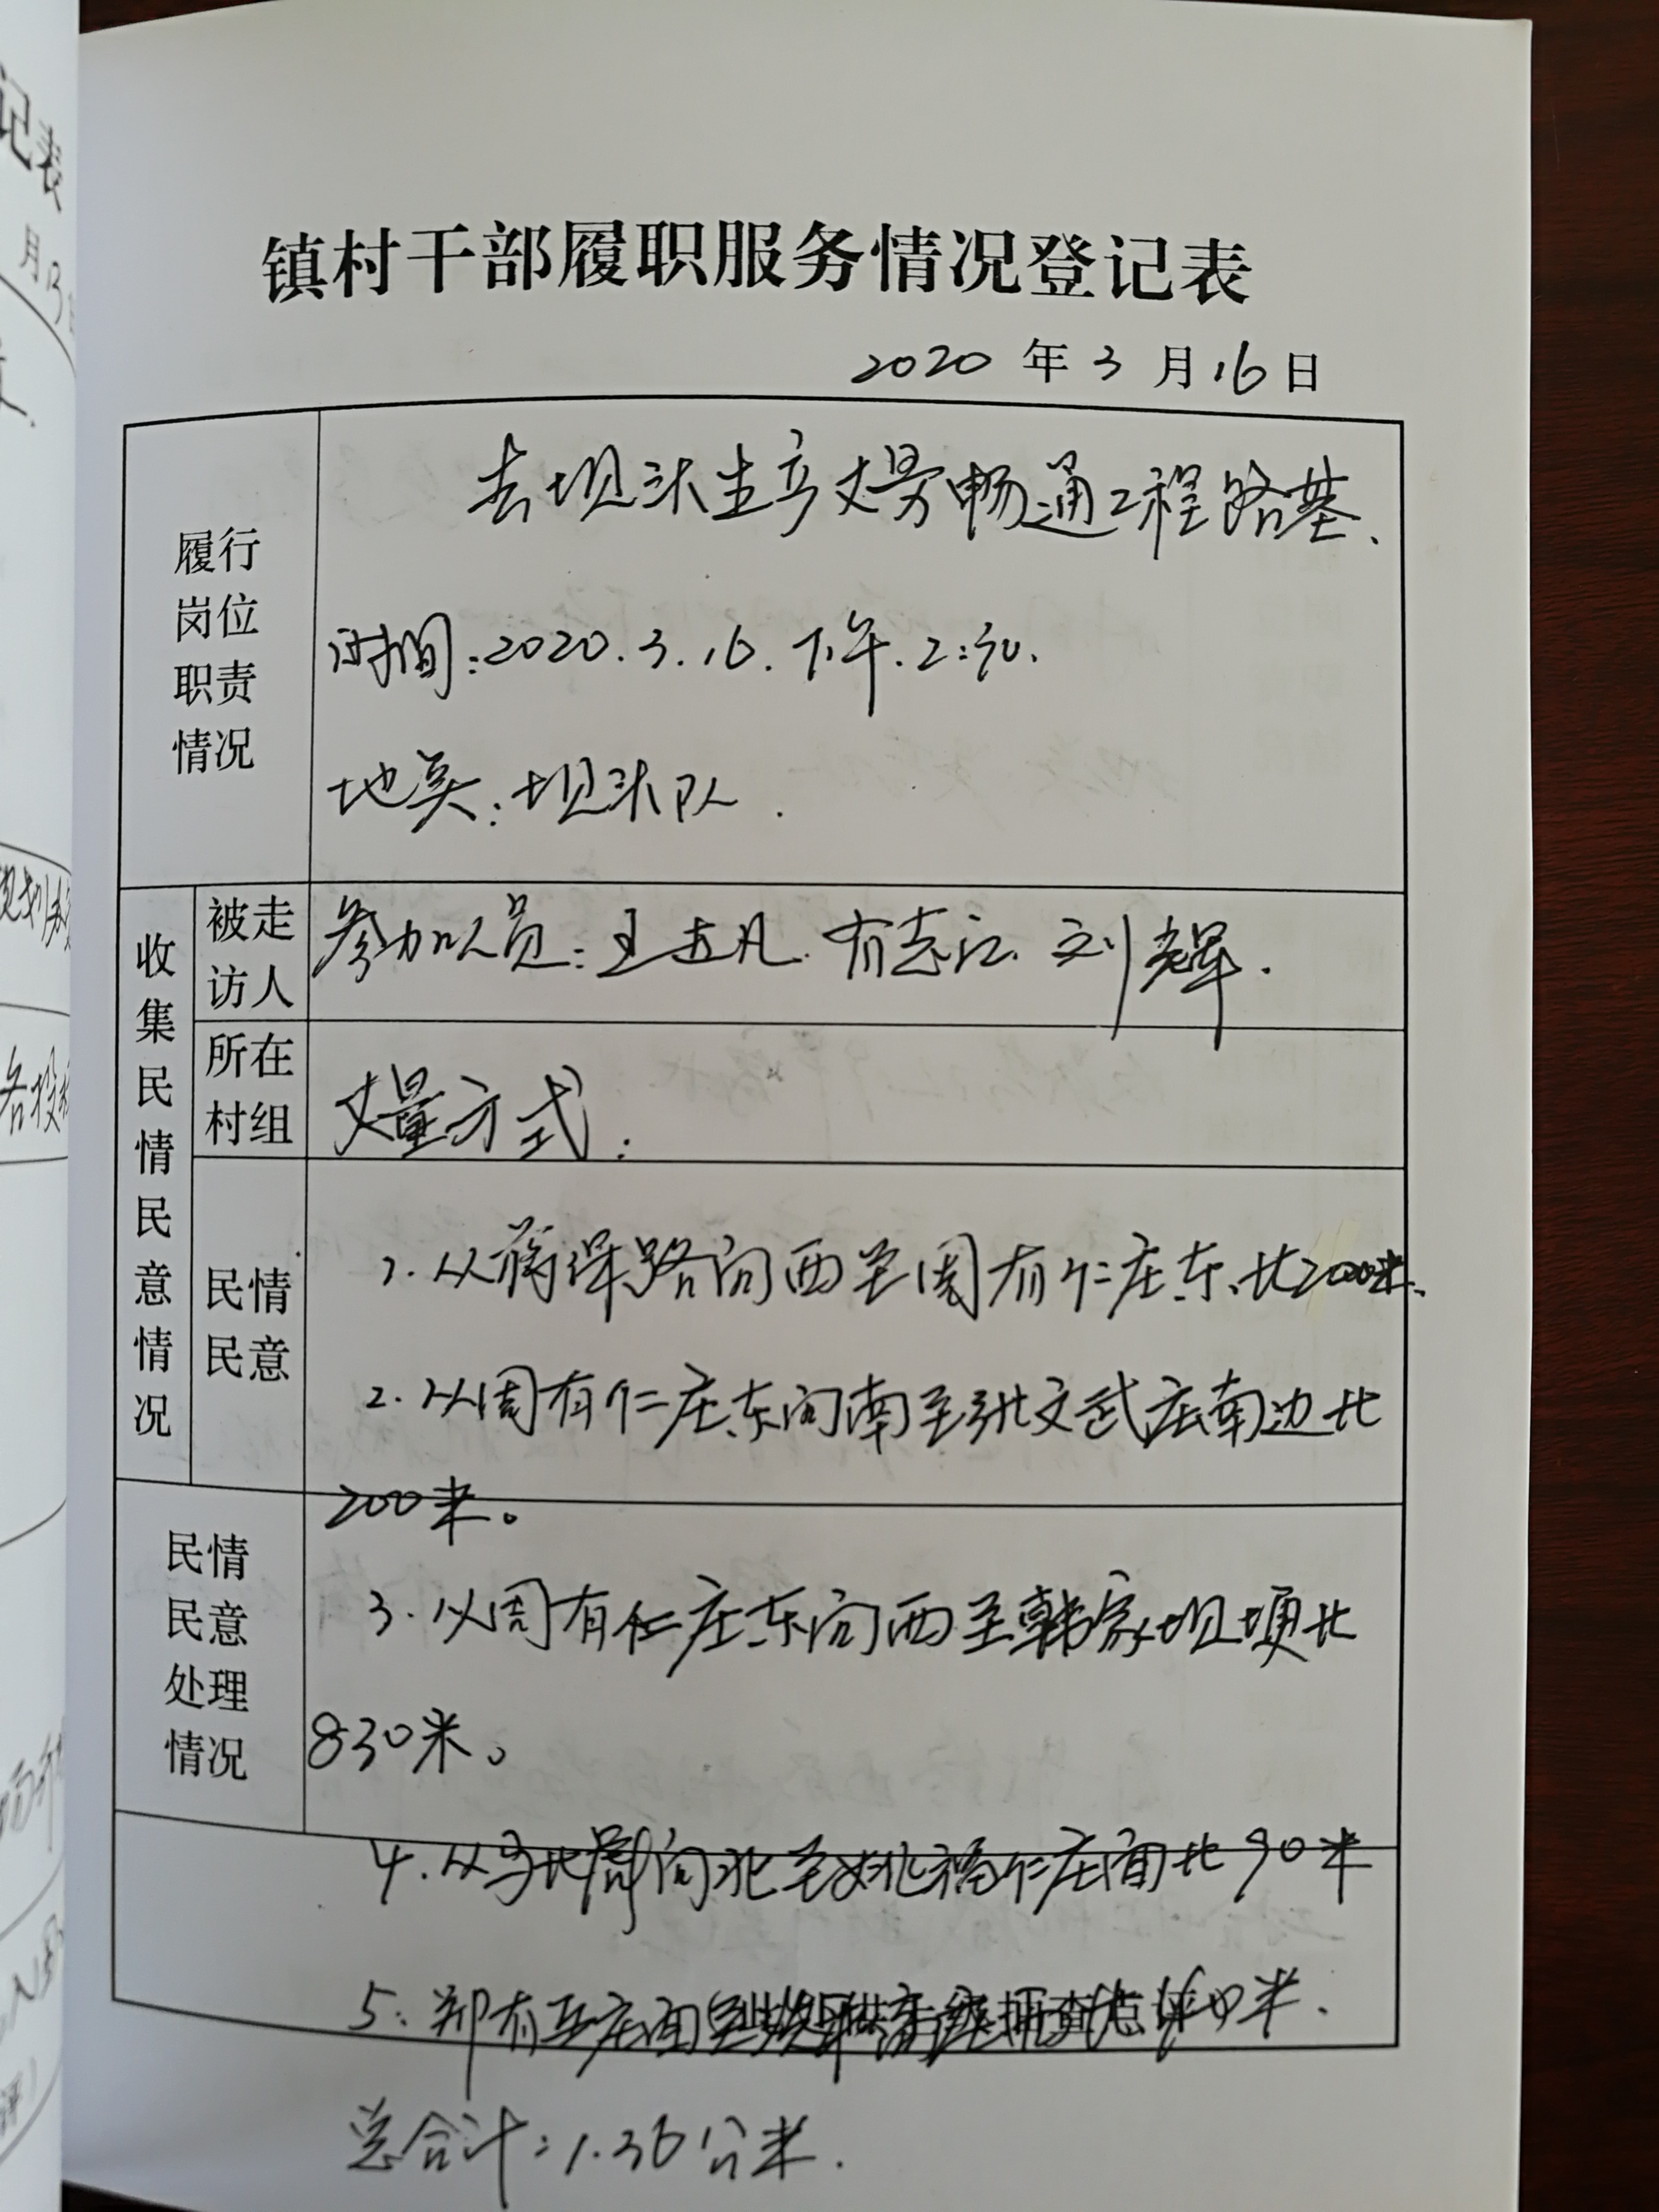 镇村干部履职服务情况登记表
2020 年 3 月 16 日
履行
岗位
职责
情况
去坝头生产丈量畅通工程路基、
时间:2020.3.16.下午.2:30.
地点:坝头队.
收集民情民意情况
被走
访人
参加人员:王 凡.有志江.刘 辉.
所在
村组
丈量方式:
民情
民意
1.从 路向西至周有仁庄东.长200米.
2.从周有仁庄东向南至张文武庄南边长
200米。
民情
民意
处理
情况
3.从周有仁庄东向西至韩家坝埂长
830米。
4.从 向北至姚福仁庄面长90米
5. 有 庄面 米.
总合计:1.36公米.
记表
月13日